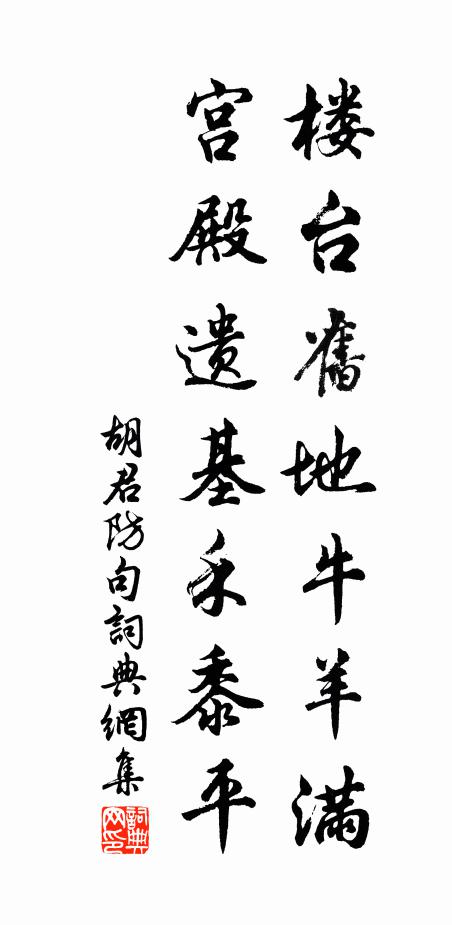 楼台舊地牛羊满
宫殿遗基禾黍平
胡君防句詞典網集
詞典網印